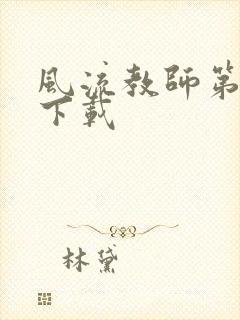 風流教師第
下載
林黛